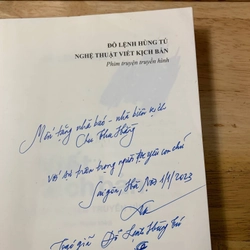 ĐỖ LỆNH HÙNG TÚ
NGHỆ THUẬT VIẾT KỊCH BẢN
Phim truyện truyền hình
Mến tặng nhà báo - nhà biên kịch
Chu Thu Hằng
với sự trân trọng người
Sài gòn, 1/1/2023
Tác giả Đỗ Lệnh Hùng Tú